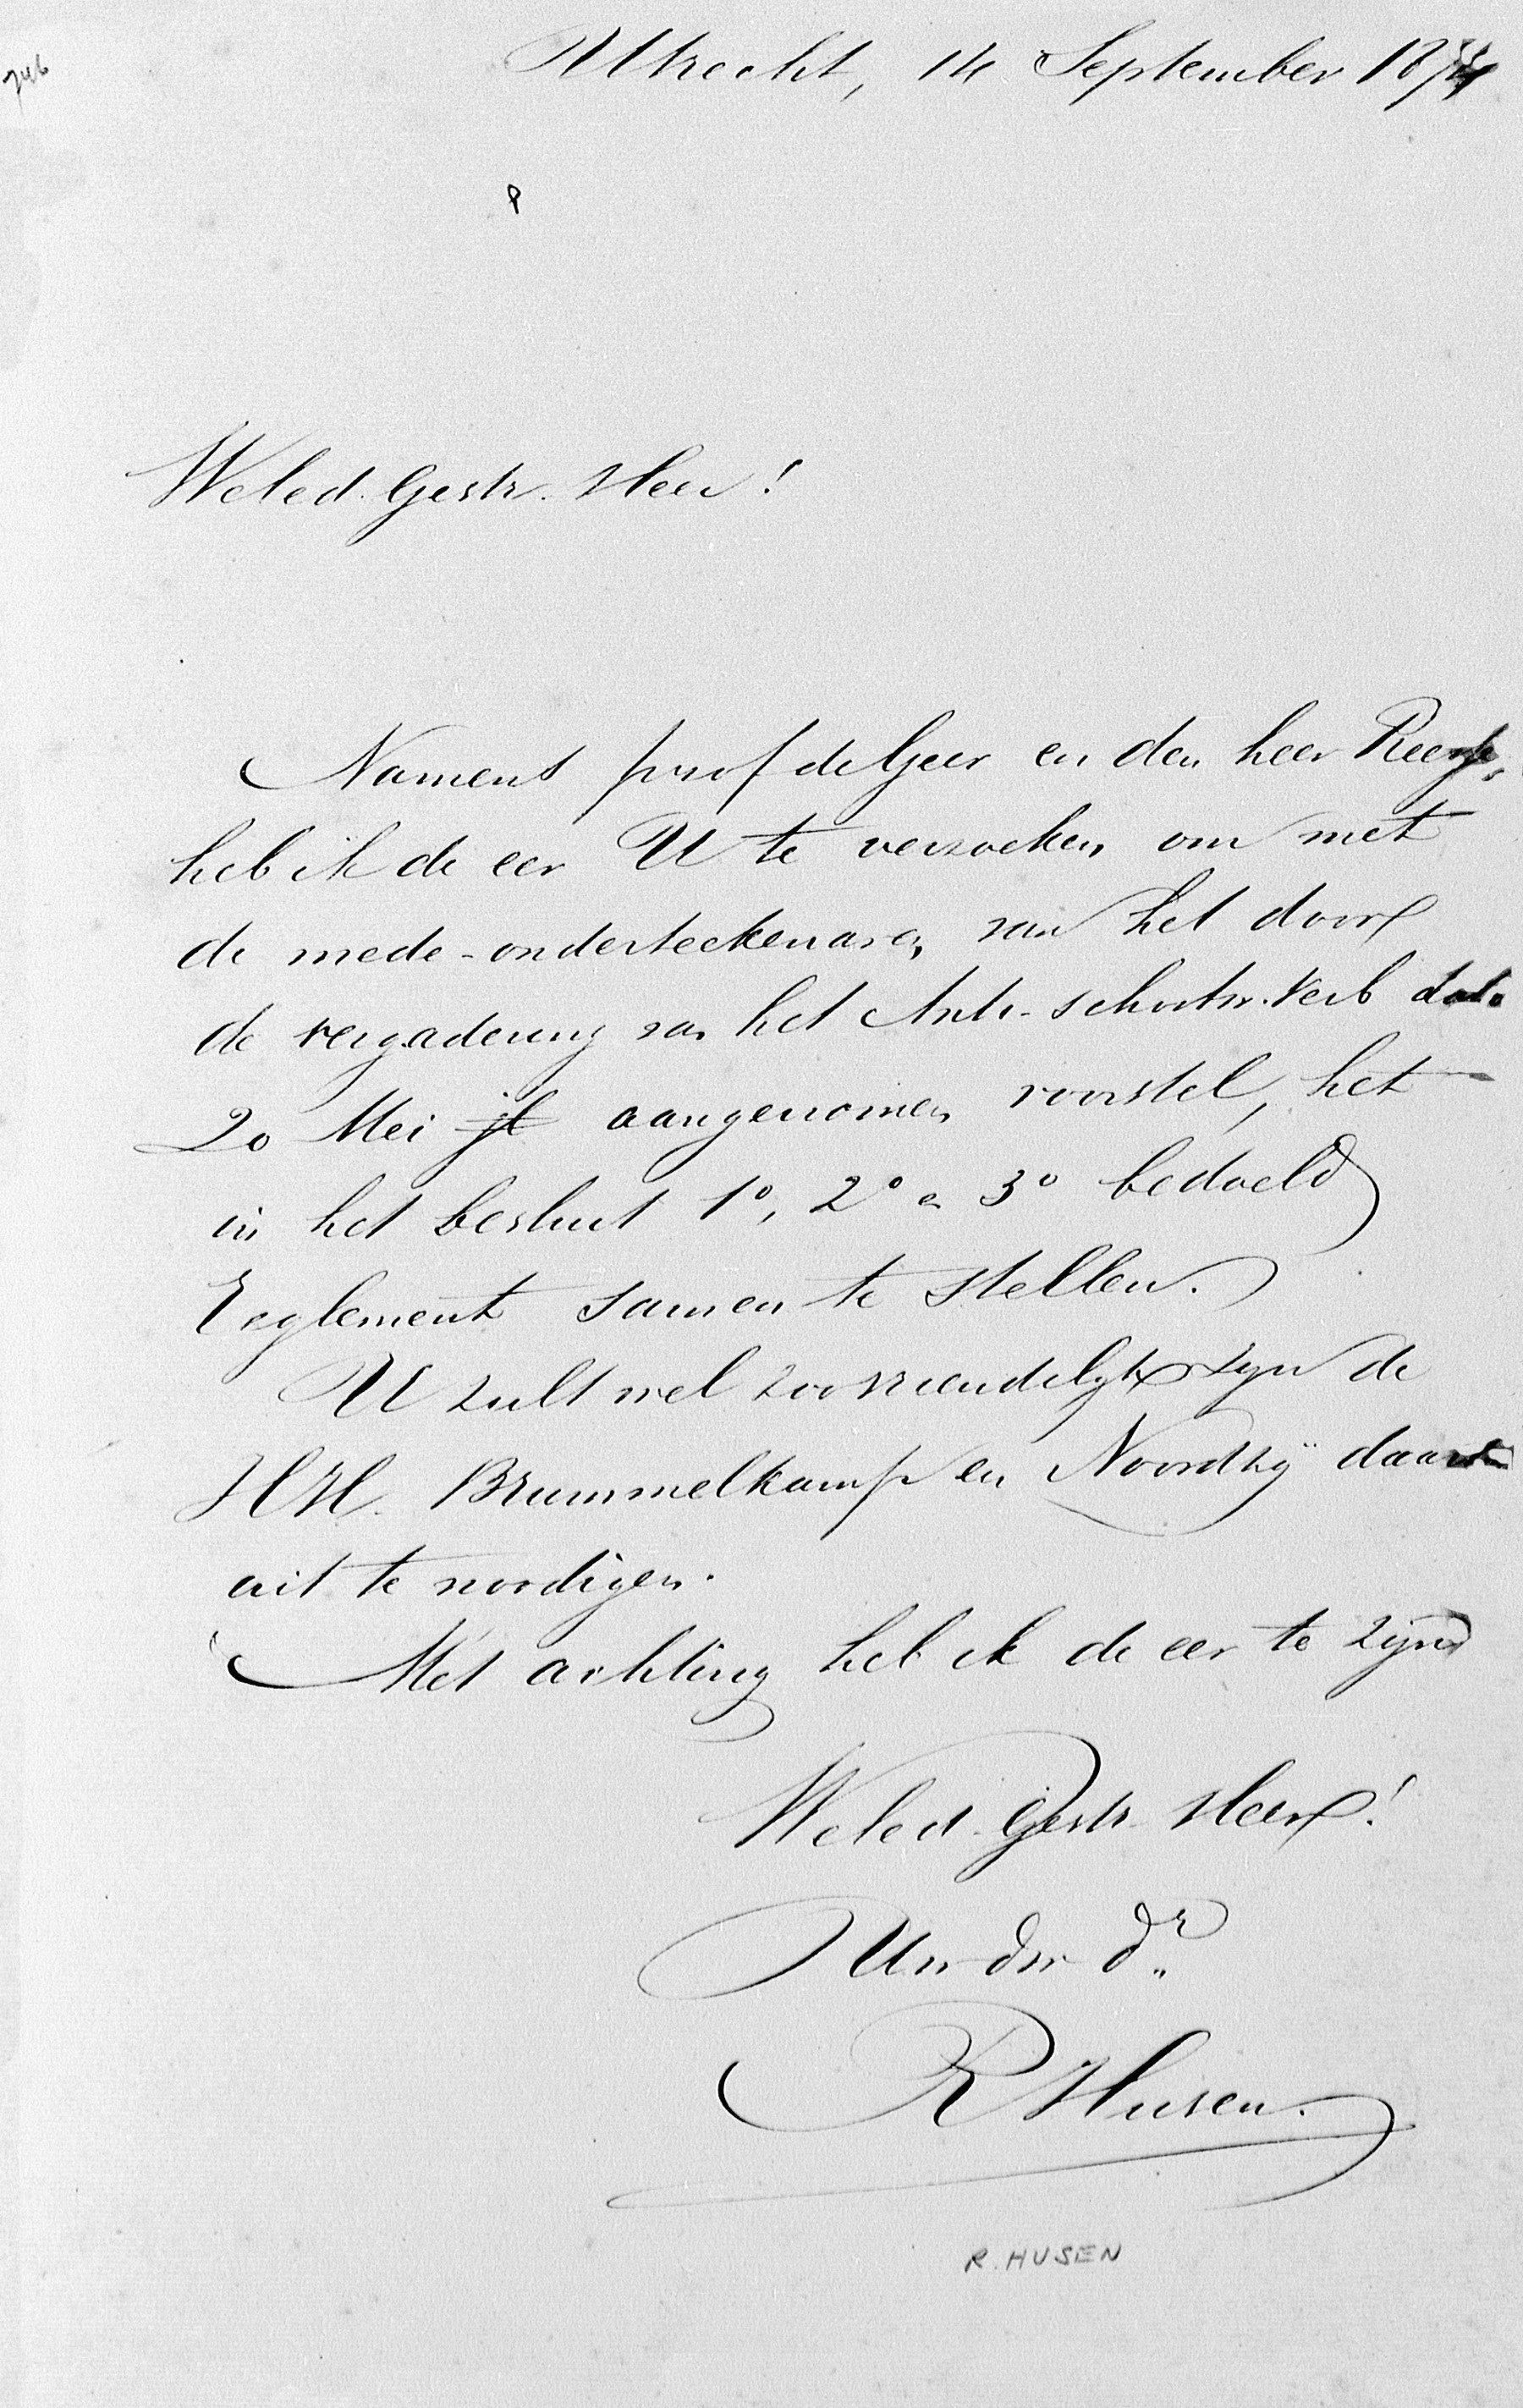 746
Utrecht, 14 September 1874
Weled. Gestr. Heer!
Namens prof de Geer en den heer
heb ik de eer U te verzoeken om met
de mede-onderteekenaren van het door
de vergadering van het Anti-schoolw. Verb
20 Mei jl aangenomen voorstel, het
in het besluit 1º, 2º en 3º bedoeld
Reglement samen te stellen.
U zult wel zoo vriendelijk zijn de
HH. Brummelkamp en Noordtzij
uit te noodigen.
Met achting heb ik de eer te zijn
Weled. Gestr. Heer!
Uw dw dr
R Husen.
R. HUSEN